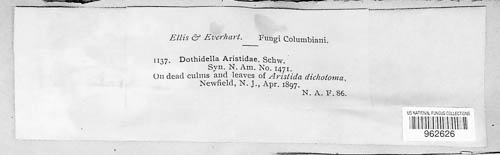 Ellis & Everhart. Fungi Columbiani.
1137. Dothidella Aristidae. Schw.
Syn. N. Am. No. 1471.
On dead culms and leaves of Aristida dichotoma.
Newfield, N. J., Apr. 1897.
N. A. F. 86.
US NATIONAL FUNGUS COLLECTIONS
962626